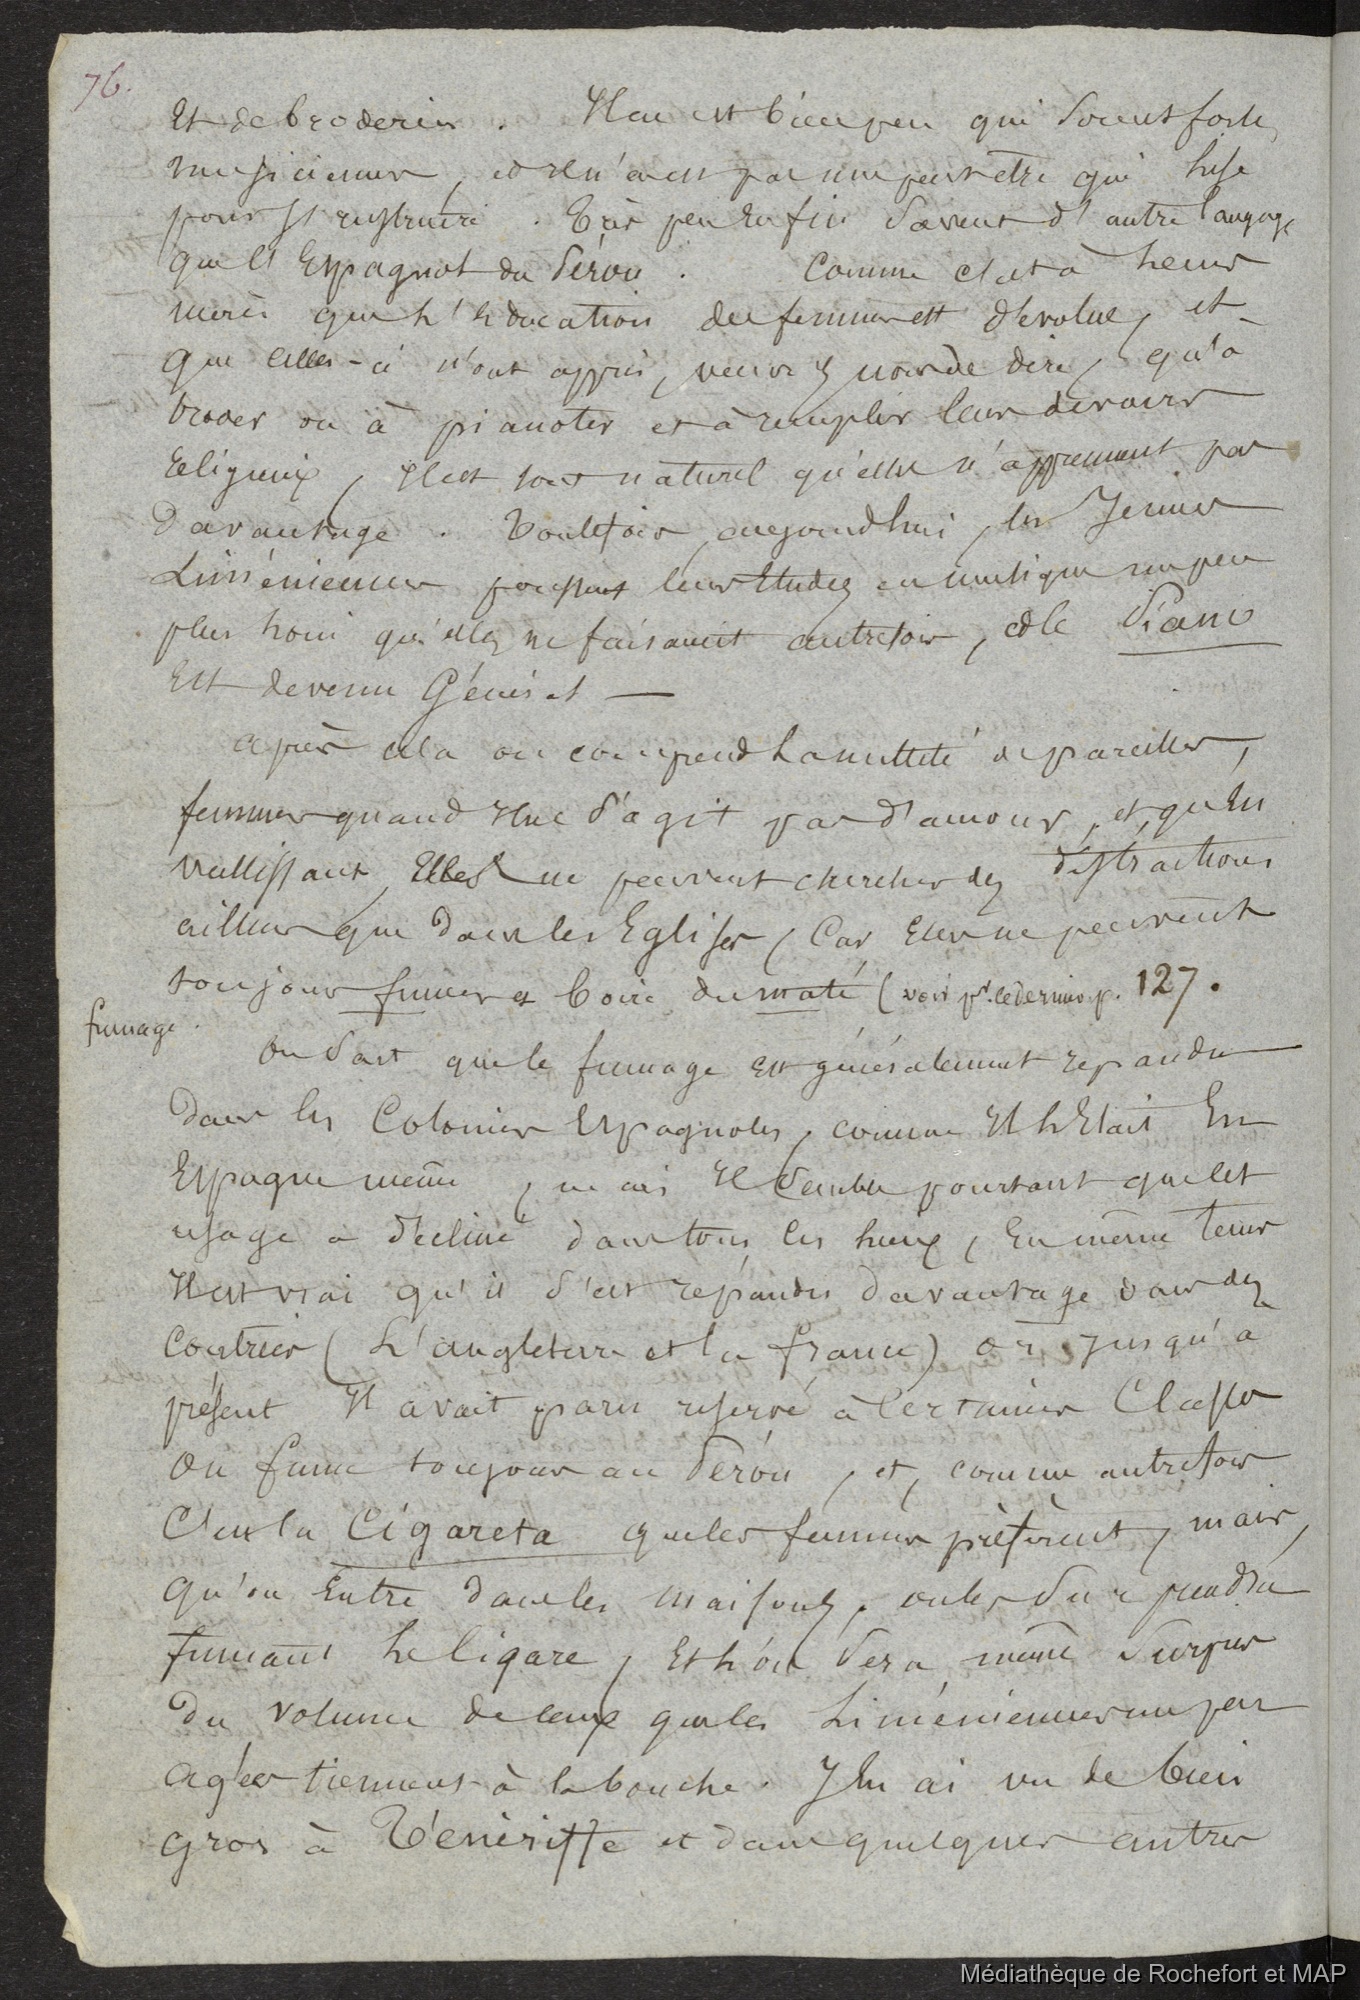 76.
Et de broderies. Il en est bien peu qui soient fortes
musiciennes, et il n'en est pas une peut être qui lise
pour s'instruire. Très peu enfin savent d'autre langage
que l'Espagnol du Pérou. Comme c'est à leurs
mères que l'éducation des femmes est dévolue, et
que celles-ci n'ont appris, venons nous de dire, qu'à
broder ou à pianoter et à remplir leurs devoirs
religieux, il est tout naturel qu'elles n'apprennent pas
davantage. Toutefois, aujourd'hui, les jeunes
Liméniennes poussent leurs Etudes en musique un peu
plus loin qu'elles ne faisaient autrefois, et le Piano
Est devenu Général —
après cela on comprend la nullité de pareilles
femmes quand il ne s'agit pas d'amour, et, qu'en
vieillissant, Elles ne peuvent chercher des distractions
ailleurs que dans les Eglises, car Elles ne peuvent
toujours fumer et boire du maté (voir pr. ce dernier p. 127.
fumage.
On sait que le fumage est généralement repandu
dans les Colonies Espagnoles, comme Il l'Etait En
Espagne même, mais Il semble pourtant que cet
usage a décliné dans tous les lieux, En même tems
Il est vrai qu'il s'est répandu davantage dans des
Contrées (L'angleterre et la france) où jusqu'à
présent Il avait paru reservé à Certaines Classes
On fume toujours au Pérou, et, comme autrefois
C'est la Cigareta que les femmes préfèrent, mais,
qu'on Entre dans les maisons, on les surprendra
fumant le Cigare, Et l'on sera même surpris
du volume de ceux que les Liméniennes un peu
agées tiennent à la bouche. J'En ai vu de bien
gros à Ténériffe et dans quelques autres
Médiathèque de Rochefort et MAP